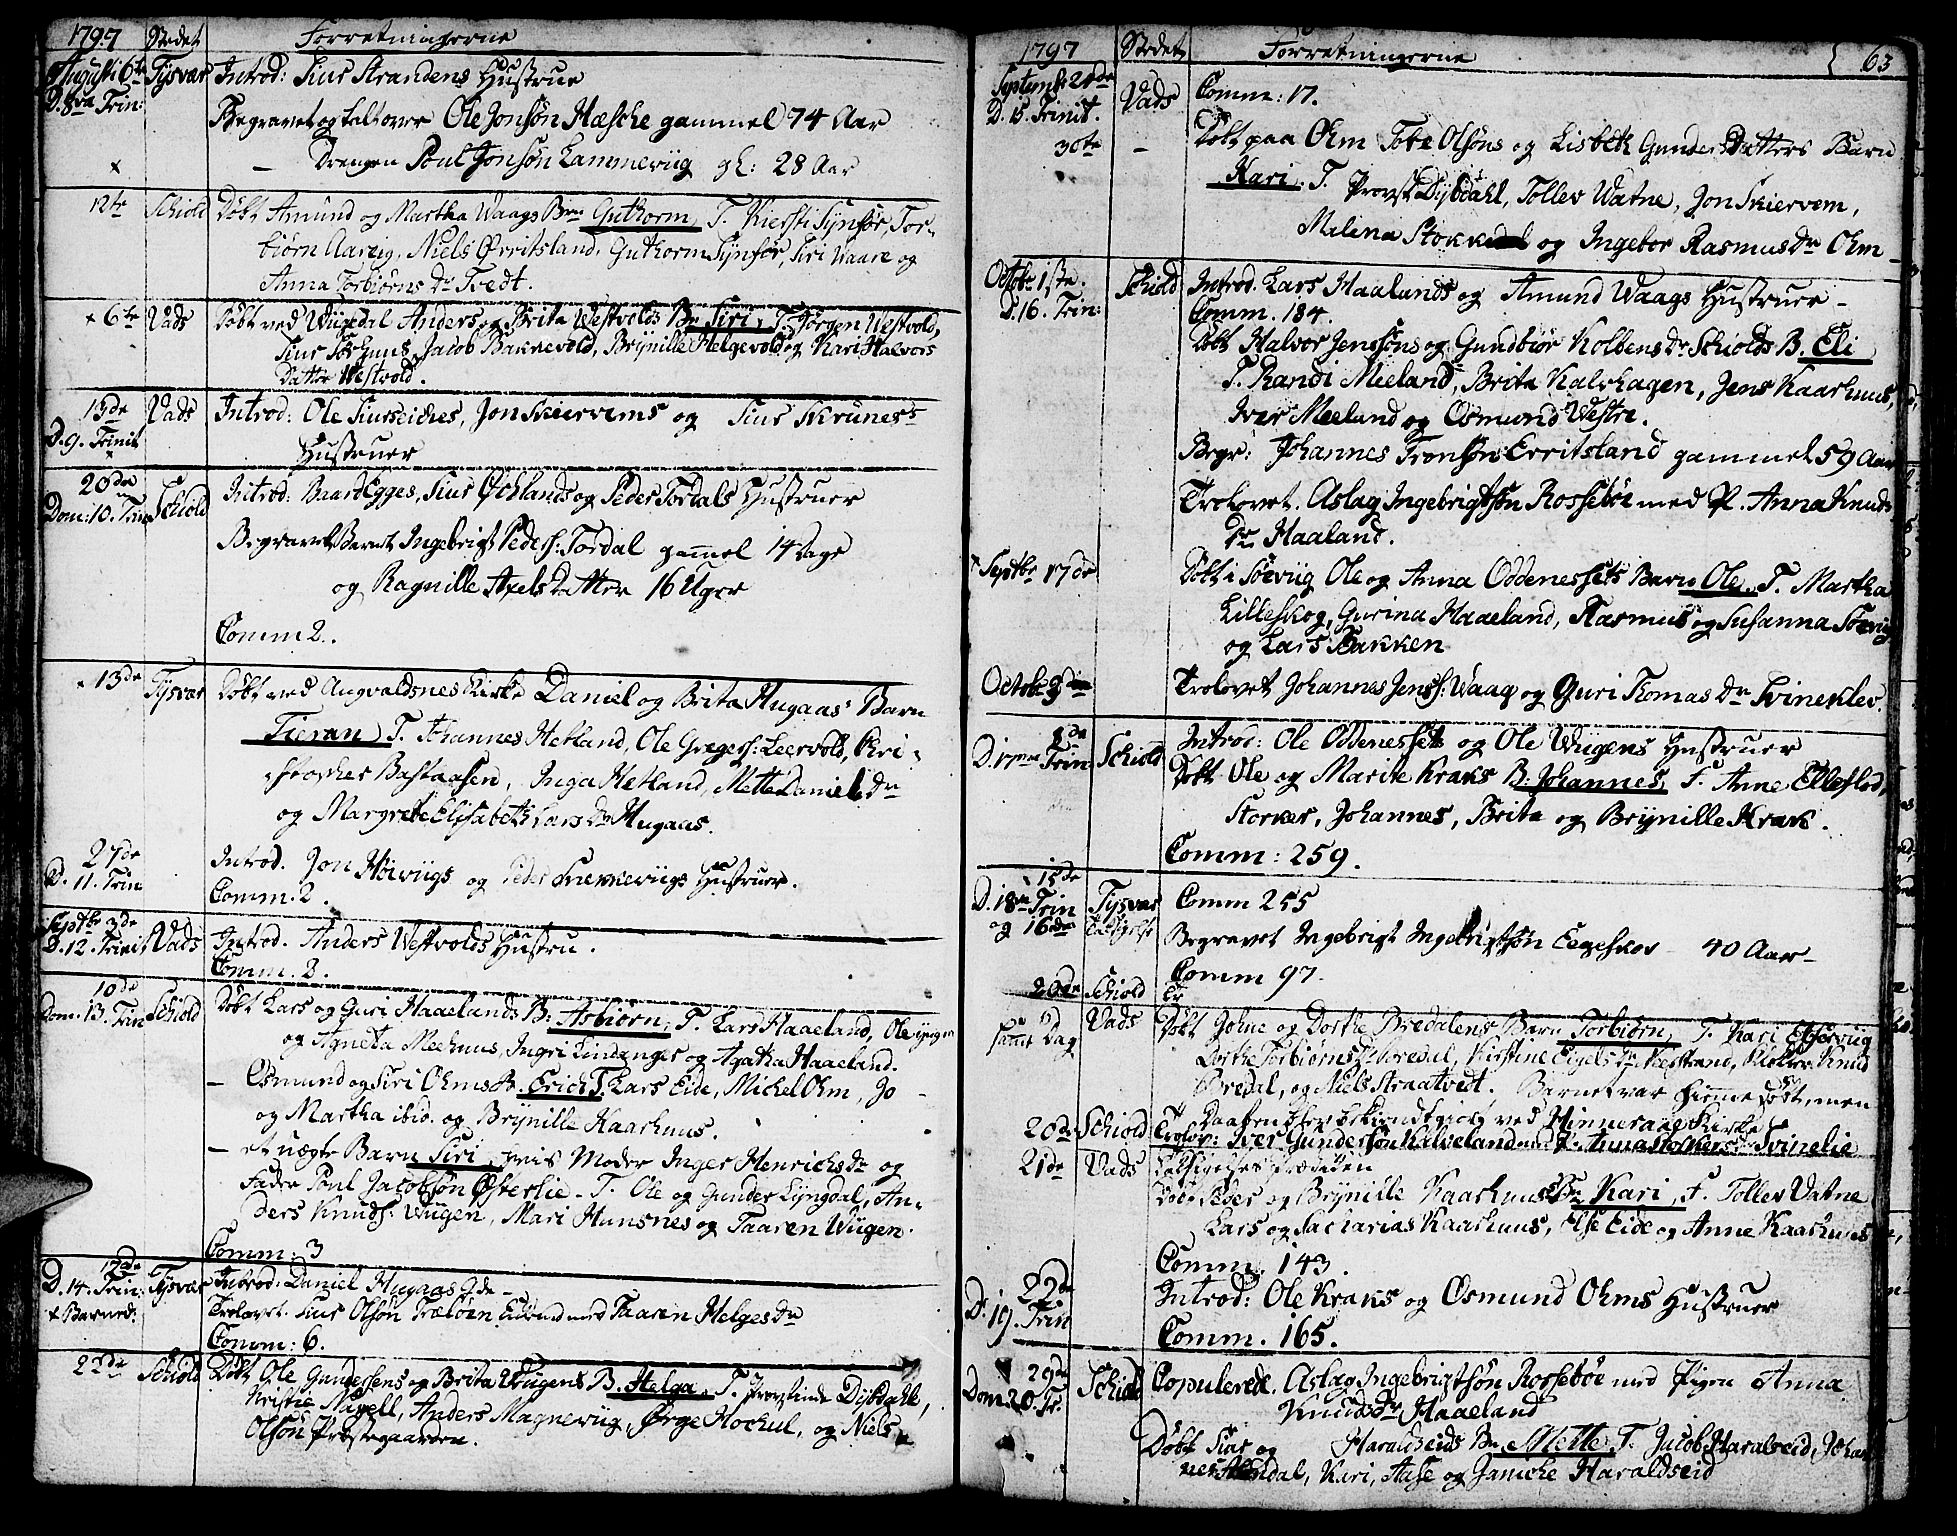 1797 Stedet Forretningerne
Augusti 6te Tysvær Introd: Siur Strandens Hustrue
D. 8va Trin: Begravet og talt over Ole Jonsøn Hæsche gammel 74 Aar
x — Drengen Poul Jonsøn Lammeviig gl: 28 Aar
12te Schiold Døbt Amund og Martha Waags Bn Guthorm, T. Kiersti Synfør, Tor-
biørn Aarvig, Niels Ørritsland, Guthorm Synfør, Siri Waare og
Anna Torbiørns Dr Tvedt.
x 6te Vads Døbt ved Wiigedal Anders og Brita Westvolds Bn Siri, T. Jørgen Westvold,
Siur Jacob Bakkevold, Brynille Helgevold og Kari Halvors
Datter Westvold.
13de Vads Introd: Ole Siurseides, Jon Skiervems og Siur Skrunes's
D. 9. Trinit Hustruer
20de Schiold Introd: Baard Egges, Siur Øchlands og Peder Tordals Hustruer
Dom: 10. Trin
Begravet Barnet Ingebrigt Peders: Tordal gammel 14 Dage
og Ragnille Axels Datter 16 Uger
Comm 2.
x 13de Tysvær Døbt ved Augvaldsnes Kirke Daniel og Brita Hugaas' Barn
Tieran, T. Johannes Hetland, Ole Gregers: Leervold, Kri-
stopher Bastaasen, Inga Hetland, Mette Daniels Dr
og Margrete Elisabeth Lars Dr Hugaas.
27de Introd. Jon Høiviigs og Peder Snekkeviigs Hustruer.
D. 11. Trin Comm. 2.
Septbr 3de
D. 12. Trinit Vads Introd. Anders Westvolds Hustru.
Comm. 2.
10de
Dom. 13. Trin Schiold Døbt Lars og Guri Haaelands B: Asbiørn, T. Lars Haaeland, Ole
og Agneta Meehuus, Ingri Lindanger og Agatha Haaeland.
— Osmund og Siri Ohms B. Erich T. Lars Eide, Michel Ohm, Jo -
og Martha ibid. og Brynille Kaarhuus.
— et uægte Barn Siri, hvis Moder Inger Henrichs Dr og
Fader Poul Jacobsøn Østerlie - T. Ole og Gunder Lyngdal, An-
ders Knuds: Wiigen, Mari Hunsnes og Taaren Wiigen.
Comm: 3
17de
D. 14. Trin: Tysvær Introd: Daniel Hugaas Qde -
x Barned: Trolovet Siur Olsøn Træløen med Taaren Helges Dr
Comm: 6.
23de Schiold Døbt Ole Gundersens og Brita Wiigens B. Helga, T. Provstinde Dybdahl,
Kristie Nagell, Anders Magneviig, Ørge Hochul, og Niels
Olsøn Præstegaarden.
1797 Stedet Forretningerne 63
Septemb: 24de
D. 15. Trinit. Vads Comm: 17.
30te — Døbt paa Ohm Tobe Olsøns og Lisbeth Gunders Datters Barn
Kari, T. Provst Dybdahl, Tollev Watne, Jon Skiervem,
Melina Stokke og Ingebor Rasmus Dr Ohm
Octobr 1ste. Schiold Introd. Lars Haalands og Amund Waags Hustruer -
D. 16. Trin: Comm. 184.
Døbt Halvor Jenssøns og Gundbiør Kolbens Dr Schiolds B. Eli
T. Randi Meeland, Brita Kalvhagen, Jens Kaarhuus,
Iver Meeland og Osmund Westre.
Begr: Johannes Tronsøn Erritsland gammel 59 Aar
Trolovet. Aslag Ingebrigtsøn Rossebøe med P. Anna Knuds
Dr Haaland.
x Septbr 17de Døbt i Søeviig Ole og Anna Oddenessets Barn Ole, T. Martha
Lilleskog, Gurina Haaeland, Rasmus og Susanna Søeviig
og Lars Bakken
Octobr 3die Trolovet Johannes Jenss: Waag og Guri Thomas Dr Svineklev.
8de
D. 17me Trin Schiold Introd: Ole Oddenessets og Ole Wiigens Hustruer
Døbt Ole og Marite Kraks B: Johannes, T. Anne Elleflod,
Storker, Johannes, Brita og Brynille Krak.
Comm: 259.
15de
D. 18de Trin Tysvær Comm 255
og 16de Begravet Ingebrigt Ingebrigtsøn Eegeskov - 40 Aar -
Comm 97.
20de Schiold
samme Dag Vads Døbt Johne og Dorthe Bredalens Barn Torbiørn, T. Kari
Dorthe Torbiørns Dr Bredal, Kirstine Eigels Dr Nerstrand, Klokker Knud
Bredal, og Niels Straatvedt. Barnet var hiemmedøbt, men
Daaben blev bekiendtgiort ved Hinneraae Kirke
20de Schiold Trolov: Iver Gundersøn Kalveland med P. Anna Storkers Dr Svinelie
21de Vads Taksigelses Prædiken
Døbt Peder og Brynille Kaarhuus Bn Kari, T. Tollev Vatne
Lars og Sacharias Kaarhuus, Else Eide og Anne Kaarhuus
Comm. 143.
22de
D. 19. Trin Introd: Ole Kraks og Osmund Ohms Hustruer
Comm. 165.
29de
Dom 20. Tr. Schiold Copulerede. Aslag Ingebrigtsøn Rossebøe med Pigen Anna
Knuds Dr Haaeland
Døbt Siur og Haraldseids Bn Mette, T. Jacob Haralseid, Johan-
nes Aendal, Kari, Aase og Janiche Haraldseid